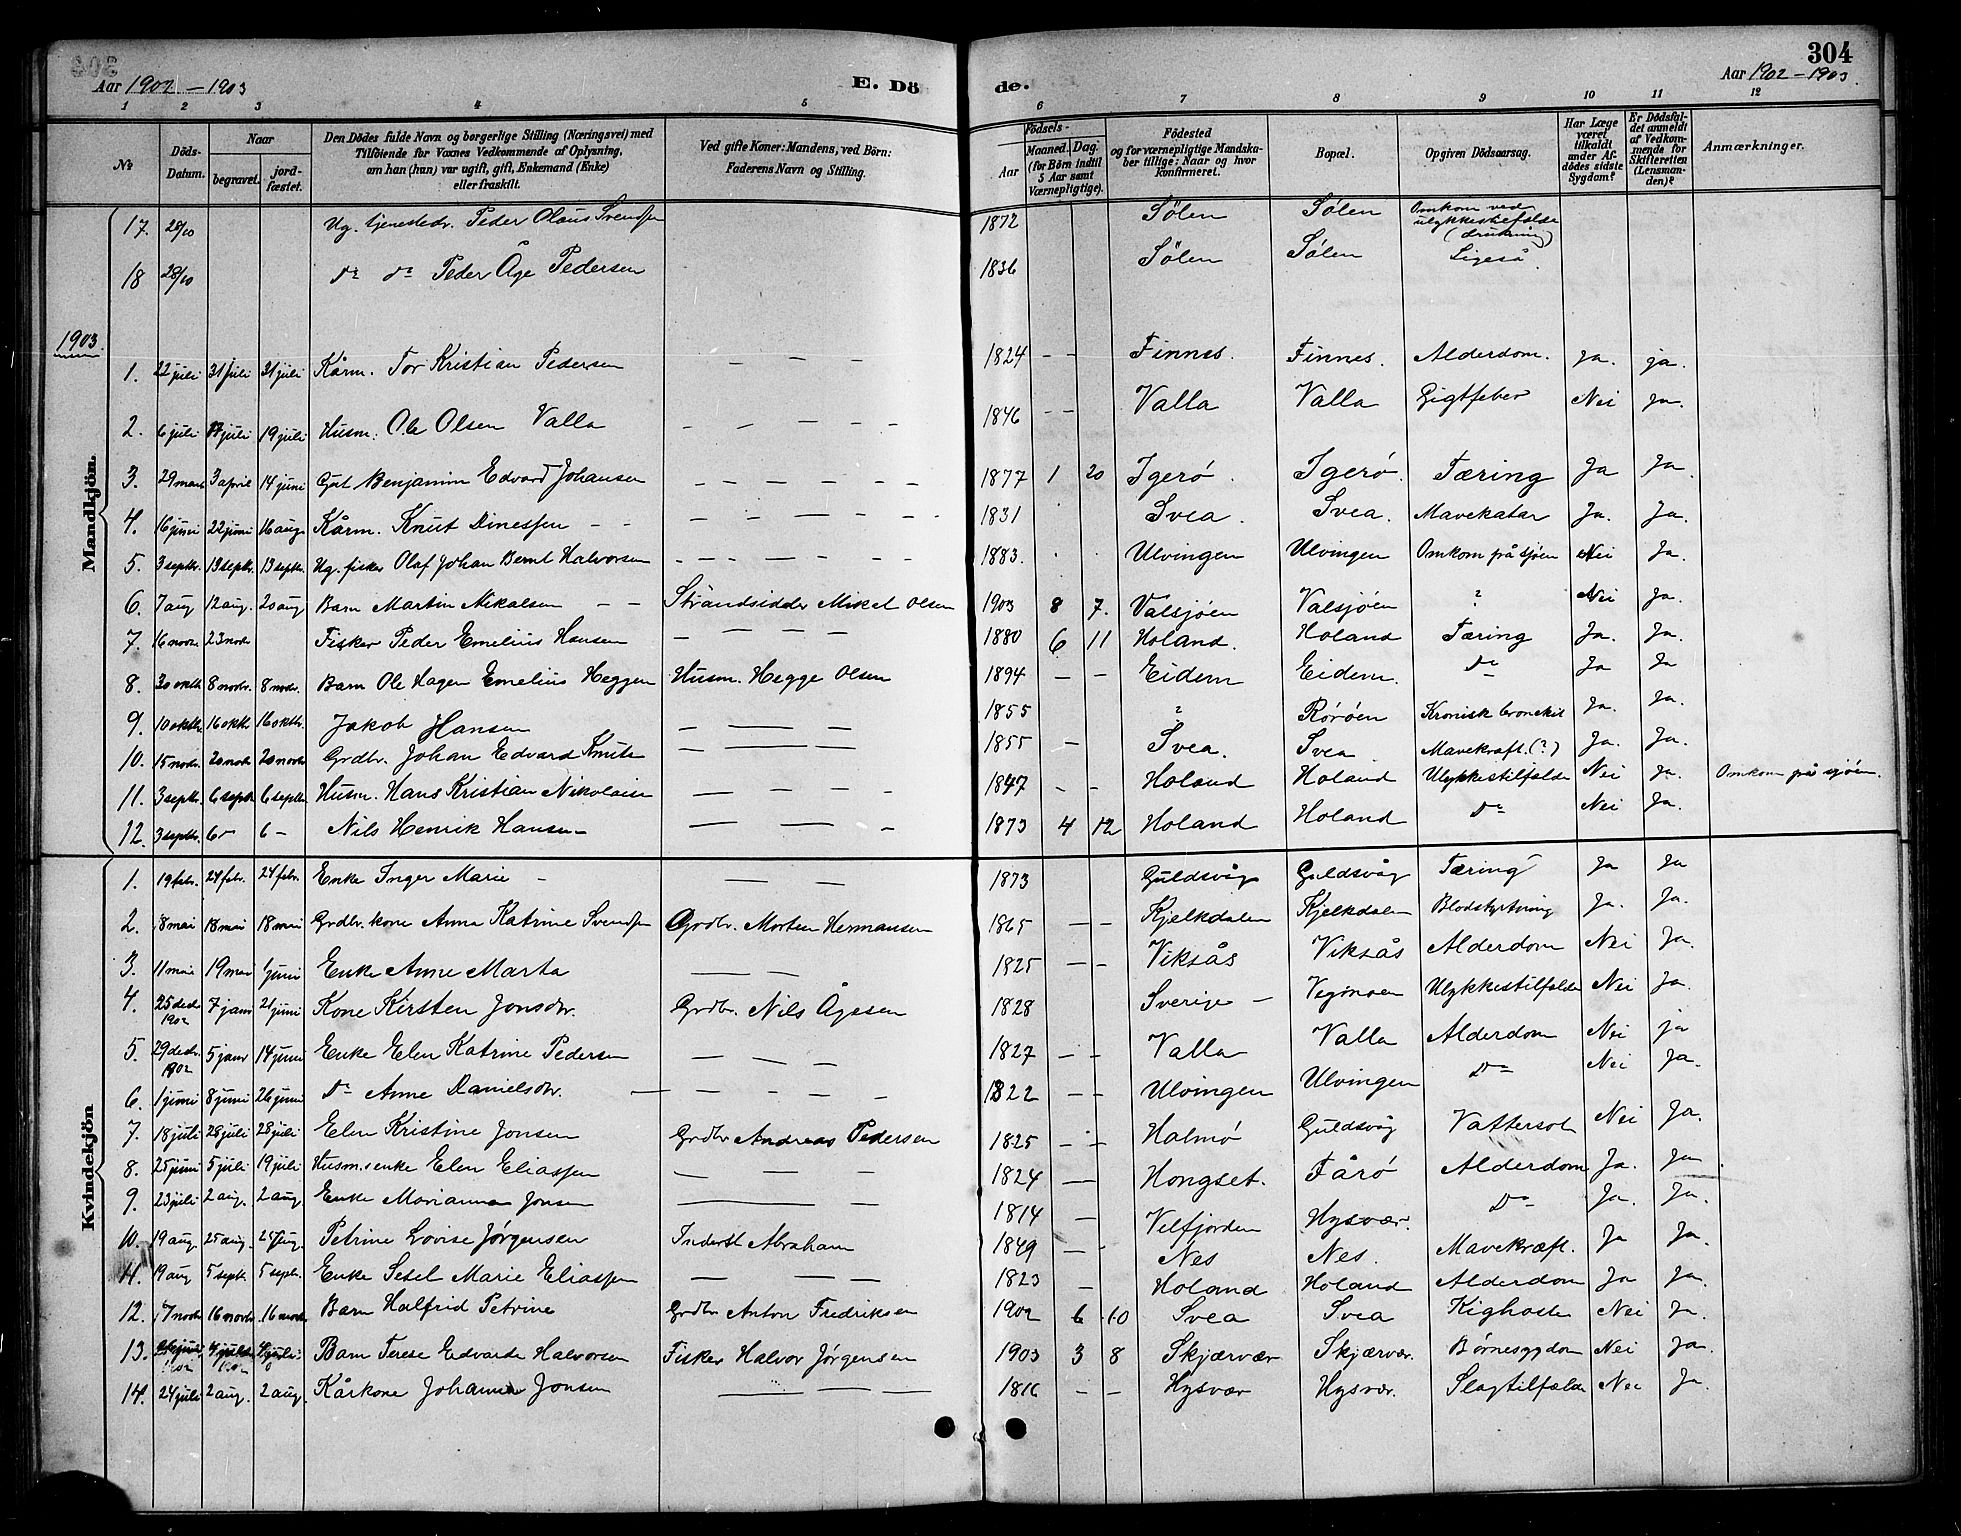 304
Aar 1902 - 1903
E. Dö
de.
Aar 1902 - 1903.
1 2 3 4 5 6 7 8 9 10 11 12
№
Döds-Datum.
Naar
begravet.
jord-fæstet.
Den Dödes fulde Navn og borgerlige Stilling (Næringsvei) med
Tilföiende for Voxnes Vedkommende af Oplysning,
om han (hun) var ugift, gift, Enkemand (Enke)
eller fraskilt.
Ved gifte Koner: Mandens, ved Börn:
Faderens Navn og Stilling.
Födsels-
Aar
Maaned. Dag.
(for Börn indtil
5 Aar samt
Værnepligtige).
Födested
og for værnepligtige Mandska-
ber tillige: Naar og hvor
konfirmeret.
Bopæl.
Opgiven Dödsaarsag.
Har Læge
været
tilkaldt
under Af-
dödes sidste
Sygdom?
Er Dödsfal-
det anmeldt
af Vedkom-
mende for
Skifteretten
(Lensman-
den)?
Anmærkninger.
Mandkjön.
17. 28/10 Ug. tjenestedr. Peder Olaus Svendsen 1872 Sölen Sölen Omkom ved ulykkestilfælde (drukning)
18 28/10 do do Peder Åge Pedersen 1836 Sölen Sølen Ligeså.
1903.
1. 22 juli 31 juli 31 juli Kårm. Tor Kristian Pedersen — — — 1824 - - Finnes. Finnes. Alderdom. Ja. ja.
2. 6 juli 17 juli 19 juli Husm. Ole Olsen Valla 1846 - - Valla Valla Gigtfeber Nei Ja.
3. 29 mars 3 april 14 juni Gut Benjamin Edvard Johansen 1877 1 20 Igerø. Igerø. Tæring Ja Ja.
4. 16 juni 22 juni 16 aug Kårm. Knut Dinessen 1831 Svea. Svea. Mavekatar Ja. Ja.
5. 3 septbr. 13 septbr. 13 septbr. Ug. fisker Olaf Johan Bernt Halvorsen 1883. Ulvingen Ulvingen Omkom på sjøen Nei Ja.
6. 7 aug 12 aug. 20 aug Barn Martin Nikalsen Strandsidder Mikal Olsen 1903 8 7. Valsjøen Valsjøen ? Nei Ja.
7. 16 novbr. 23 novbr Fisker Peder Emelius Hansen 1880 6 11 Holand. Holand Tæring Ja. Ja.
8. 30 oktbr 8 novbr. 8 novbr. Barn Ole Hagen Emelius Heggen Husm. Hegge Olsen 1894 - - Eidem Eidem. do Ja Ja
9. 10 oktbr. 16 oktbr. 16 oktbr. Jakob Hansen 1855 ? Rørøen Kronisk bronckit Ja. Ja.
10. 15 novbr. 20 novbr 20 novbr Grdbr. Johan Edvard Knuts 1855 - Svea. Svea Mavekræft. (?) Ja. Ja.
11. 3 septbr. 6 septbr 6 septbr Husm. Hans Kristian Nikolaise 1847 - - Holand Holand Ulykkestilfælde Nei Ja. Omkom på sjøen.
12. 3 septbr. 6 - 6 - Nils Henrik Hansen 1873 4 12 Holand Holand do Nei Ja.
Kvindekjön
1. 19 febr. 24 febr. 24 febr. Enke Inger Marie - 1873 Guldsvåg Guldsvåg Tæring Ja Ja
2. 8 mai 18 mai 18 mai Grdbr. kone Anna Katrine Svendsen Grdbr. Morten Hermansen 1865 - - Kjelkdalen Kjelkdalen Blodstyrtning Ja. Ja.
3. 11 mai 19 mai 1 juni Enke Anne Marta 1825 - - Viksås Viksås Alderdom Nei Ja.
4. 25 decbr 1902 7 janr 21 juni Kone Kirsten Jonsdtr. Grdbr. Nils Ågesen 1828 Sverige - Vegmoen Ulykkestilfælde Nei Ja.
5. 29 decbr. 1902 5 janr 14 juni Enke Elen Katrine Pedersen 1827 - - Valla Valla Alderdom Nei ja
6. 1 juni 8 juni 26 juni do Anne Danielsdtr. 1822 - - Ulvingen Ulvingen do Nei Ja.
7. 18 juli 28 juli 28 juli Elen Kristine Jonsen Grdbr Andreas Pedersen 1825 - - Halmø Guldsvåg Vattersot Nei Ja.
8. 25 juni 5 juli 19 juli Husm.senke Elen Eliassen 1824 — Hongset. Fårø Alderdom Ja. Ja.
9. 23 juli 2 aug. 2 aug. Enke Marianna Jonsen 1814 - Velfjorden Hysvær. do Ja. Ja.
10. 19 aug. 25 aug. 25 aug. Petrine Lovise Jørgensen Inderst Abraham 1849 - - Nes Nes. Mavekræft. Ja Ja.
11. 19 aug 5 septbr. 5 septbr. Enke Sesel Marie Eliassen 1823 - Holand Holand Alderdom Ja Ja.
12. 7 novbr 16 novbr. 16 novbr. Barn Halfrid Petrine Grdbr Anton Fredriksen 1902 6 10 Svea Svea Kighoste Nei Ja.
13. 1902 Barn Terese Edvarda Halvorsen Fisker Halvor Jørgensen 1903 3 8 Skjærvær Skjærvær. Børnesygdom Nei Ja.
14. 24 juli 2 aug. 2 aug. Kårkone Johanna Jonsen 1816 - - Hysvær Hysvær. Slagtilfælde Nei Ja.